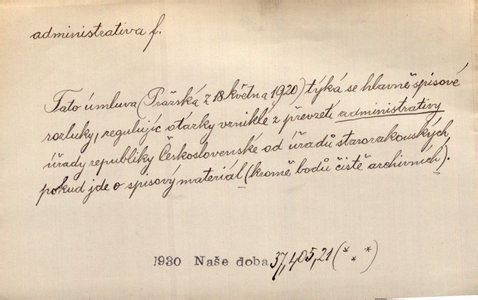 administrativa f.
Tato úmluva (Pražská z 18. května 1920) týká se hlavně spisové
rozluky, regulujíc otázky vzniklé z převzetí administrativy
úřady republiky Československé od úřadů starorakouských,
pokud jde o spisový materiál (kromě bodů čistě archivních).
1930 Naše doba 37, 405, 21 (* * *)